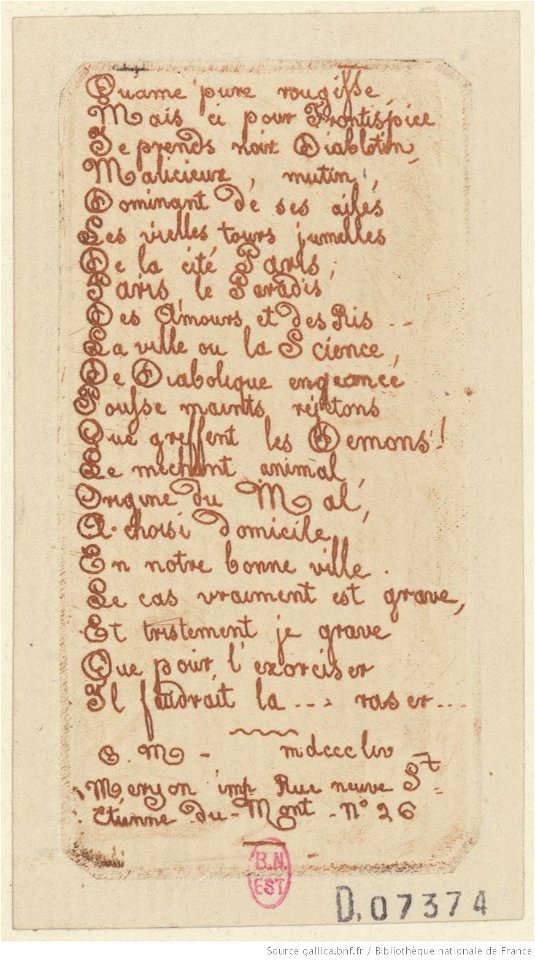 Qu'ame pure rougisse,
Mais ci pour Frontispice
Je prends noir Diablotin,
Malicieux, mutin,
Dominant de ses ailes
Les vielles tours jumelles
De la cité Paris,
Paris le Paradis
Des Amours et des Ris ...
La ville ou la Science,
De Diabolique engeance
Pousse maints rejetons
Que greffent les Démons!
Le mechant animal,
Origine du Mal,
A choisi domicile
En notre bonne ville.
Le cas vraiment est grave,
Et tristement je grave
Que pour l'exorciser
Il faudrait la ... raser ...
C. M - mdcccliv -
Meryon imp Rue neuve St
Etienne du-Mont - N° 26
B.N.
EST
D.07374
Source gallica.bnf.fr / Bibliothèque nationale de France